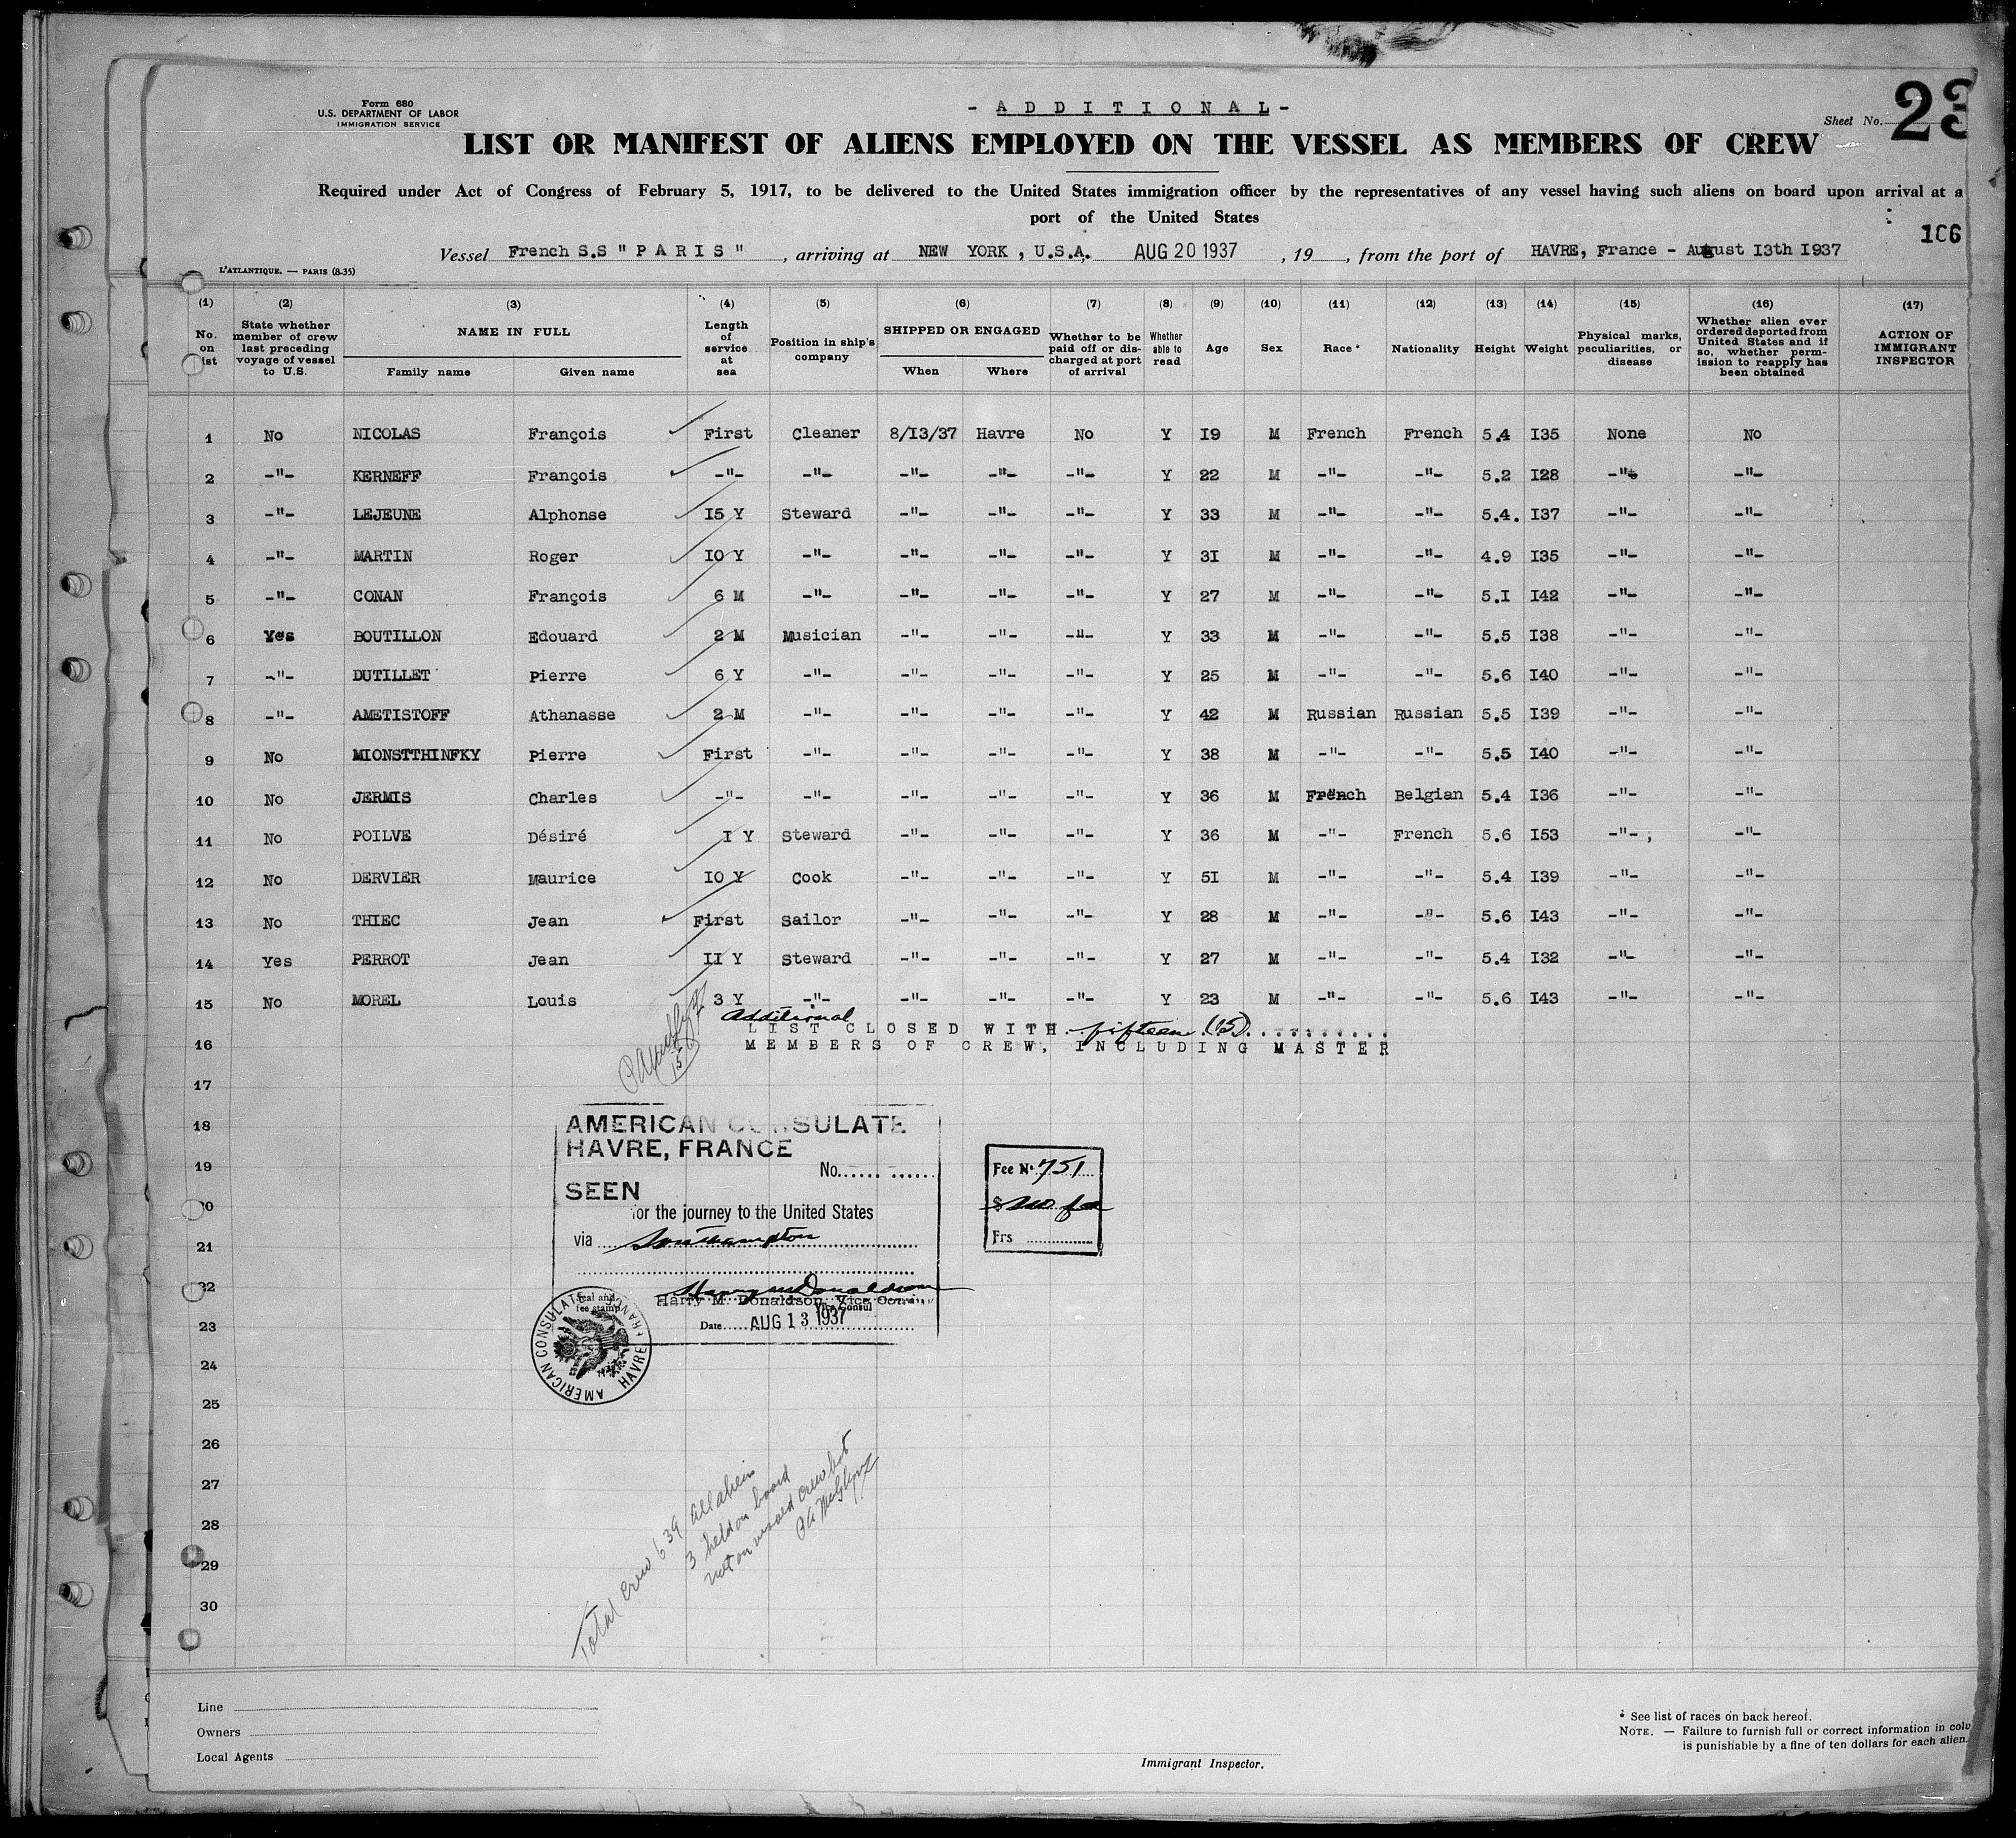 Form 680
U.S. DEPARTMENT OF LABOR
IMMIGRATION SERVICE
- A D D I T I O N A L -
Sheet No. 23
LIST OR MANIFEST OF ALIENS EMPLOYED ON THE VESSEL AS MEMBERS OF CREW
Required under Act of Congress of February 5, 1917, to be delivered to the United States immigration officer by the representatives of any vessel having such aliens on board upon arrival at a
port of the United States
106
Vessel French S.S " P A R I S " , arriving at NEW YORK , U.S.A. AUG 20 1937 , 19 , from the port of HAVRE, France - August I3th I937
L'ATLANTIQUE. — PARIS (8-35)
(1) (2) (3) (4) (5) (6) (7) (8) (9) (10) (11) (12) (13) (14) (15) (16) (17)
No. on ist
State whether member of crew last preceding voyage of vessel to U.S.
NAME IN FULL
Family name Given name
Length of service at sea
Position in ship's company
SHIPPED OR ENGAGED
When Where
Whether to be paid off or discharged at port of arrival
Whether able to read
Age
Sex
Race *
Nationality
Height
Weight
Physical marks, peculiarities, or disease
Whether alien ever ordered deported from United States and if so, whether permission to reapply has been obtained
ACTION OF IMMIGRANT INSPECTOR
1 No NICOLAS François First Cleaner 8/I3/37 Havre No Y I9 M French French 5.4 I35 None No
2 -"- KERNEFF François -"- -"- -"- -"- -"- Y 22 M -"- -"- 5.2 I28 -"- -"-
3 -"- LEJEUNE Alphonse I5 Y Steward -"- -"- -"- Y 33 M -"- -"- 5.4. I37 -"- -"-
4 -"- MARTIN Roger IO Y -"- -"- -"- -"- Y 3I M -"- -"- 4.9 I35 -"- -"-
5 -"- CONAN François 6 M -"- -"- -"- -"- Y 27 M -"- -"- 5.I I42 -"- -"-
6 Yes BOUTILLON Edouard 2 M Musician -"- -"- -"- Y 33 M -"- -"- 5.5 I38 -"- -"-
7 -"- DUTILLET Pierre 6 Y -"- -"- -"- -"- Y 25 M -"- -"- 5.6 I40 -"- -"-
8 -"- AMETISTOFF Athanasse 2 M -"- -"- -"- -"- Y 42 M Russian Russian 5.5 I39 -"- -"-
9 No MIONSTTHINFKY Pierre First -"- -"- -"- -"- Y 38 M -"- -"- 5.5 I40 -"- -"-
10 No JERMIS Charles -"- -"- -"- -"- -"- Y 36 M French Belgian 5.4 I36 -"- -"-
11 No POILVE Désiré I Y Steward -"- -"- -"- Y 36 M -"- French 5.6 I53 -"- ; -"-
12 No DERVIER Maurice IO Y Cook -"- -"- -"- Y 5I M -"- -"- 5.4 I39 -"- -"-
13 No THIEC Jean First Sailor -"- -"- -"- Y 28 M -"- -"- 5.6 I43 -"- -"-
14 Yes PERROT Jean II Y Steward -"- -"- -"- Y 27 M -"- -"- 5.4 I32 -"- -"-
15 No MOREL Louis 3 Y -"- -"- -"- -"- Y 23 M -"- -"- 5.6 I43 -"- -"-
Additional
LIST CLOSED WITH fifteen (15)
16 MEMBERS OF CREW, INCLUDING MASTER
15
17
18
AMERICAN CONSULATE
HAVRE, FRANCE
19
No.
SEEN
20
for the journey to the United States
21
via Southampton
22
Harry M Donaldson
Harry M. Donaldson, Vice Consul
Vice Consul
Seal and fee stamp
23
Date AUG 13 1937
AMERICAN CONSULATE HAVRE FRANCE
Fee No 751
$ no fee
Frs
24
25
26
27
28
29
30
Total Crew 639 all aliens
3 held on board
not on visaed crew list
Line
Owners
Local Agents
Immigrant Inspector.
* See list of races on back hereof.
NOTE. — Failure to furnish full or correct information in colu
is punishable by a fine of ten dollars for each alien.